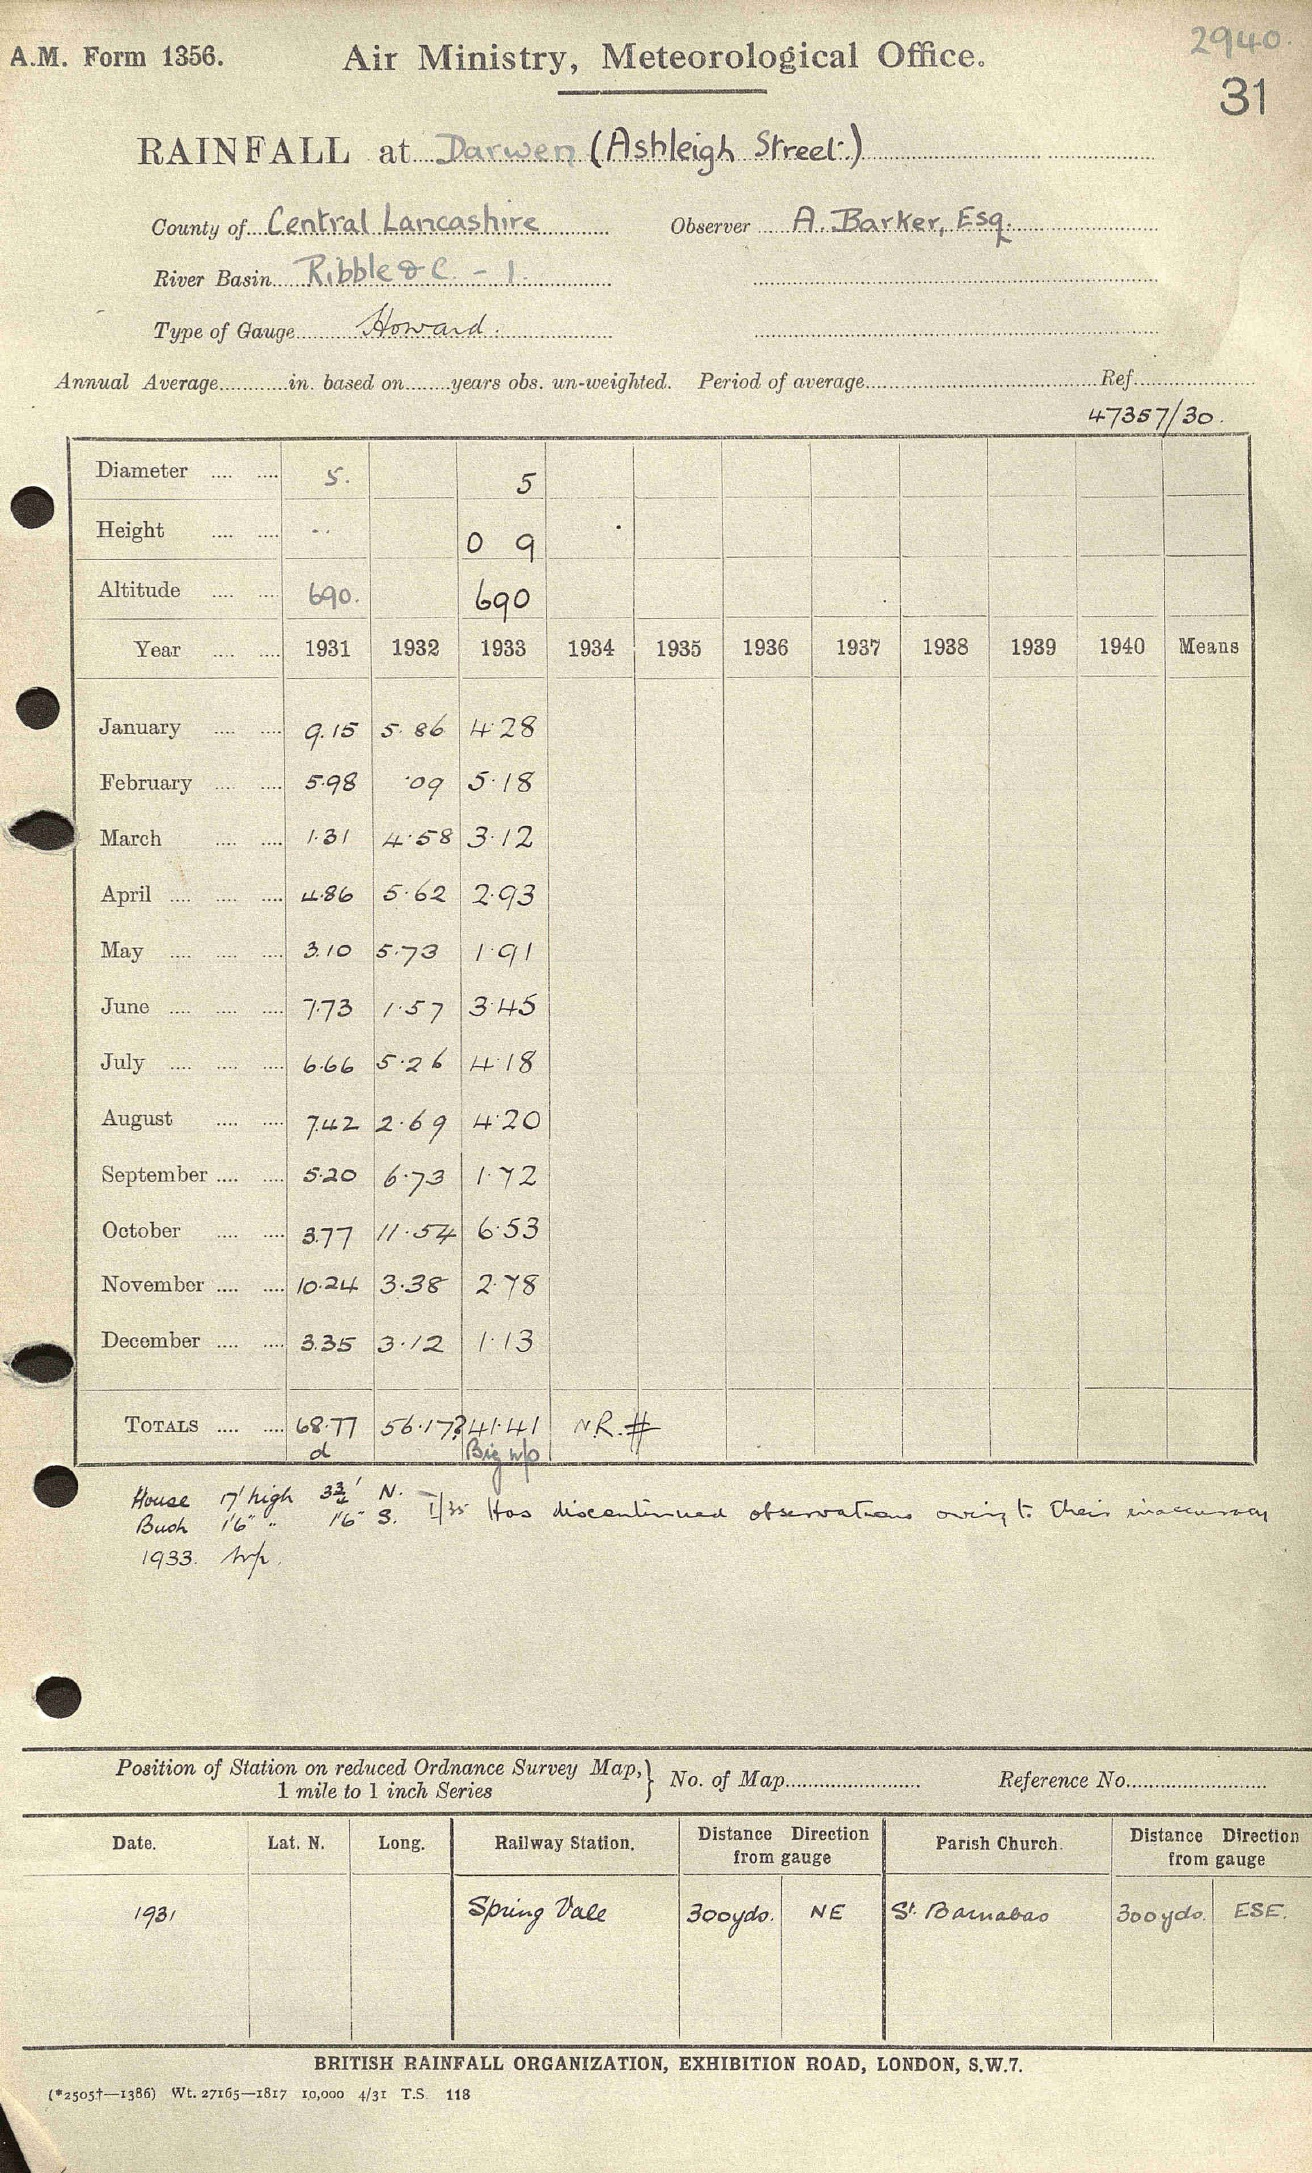 2940.
A.M. Form 1356. Air Ministry, Meteorological Office.
31
RAINFALL at Darwen (Ashleigh Street.)
County of Central Lancashire Observer A. Barker, Esq.
River Basin Ribble &c. - 1.
Type of Gauge Howard.
Annual Average in. based on years obs. un-weighted. Period of average Ref.
47357/30.
Diameter 5. 5
Height 0 9
Altitude 690. 690
Year 1931 1932 1933 1934 1935 1936 1937 1938 1939 1940 Means
January 9.15 5.86 4.28
February 5.98 .09 5.18
March 1.31 4.58 3.12
April 4.86 5.62 2.93
May 3.10 5.73 1.91
June 7.73 1.57 3.45
July 6.66 5.26 4.18
August 7.42 2.69 4.20
September 5.20 6.73 1.72
October 3.77 11.54 6.53
November 10.24 3.38 2.78
December 3.35 3.12 1.13
TOTALS 68.77 56.17? 41.41 N.R. #
d Big w/p
House 17' high 33/4' N.
Bush 1'6" " 1'6" S. I/35 Has discontinued observations owing to their inaccuracy
1933.
Position of Station on reduced Ordnance Survey Map, } No. of Map Reference No.
1 mile to 1 inch Series
Date. Lat. N. Long. Railway Station. Distance Direction from gauge Parish Church. Distance Direction from gauge
1931 Spring Vale 300yds. NE St. Barnabas 300yds. ESE.
BRITISH RAINFALL ORGANIZATION, EXHIBITION ROAD, LONDON, S.W.7.
(*2505†—1386) Wt. 27165—1817 10,000 4/31 T.S. 118